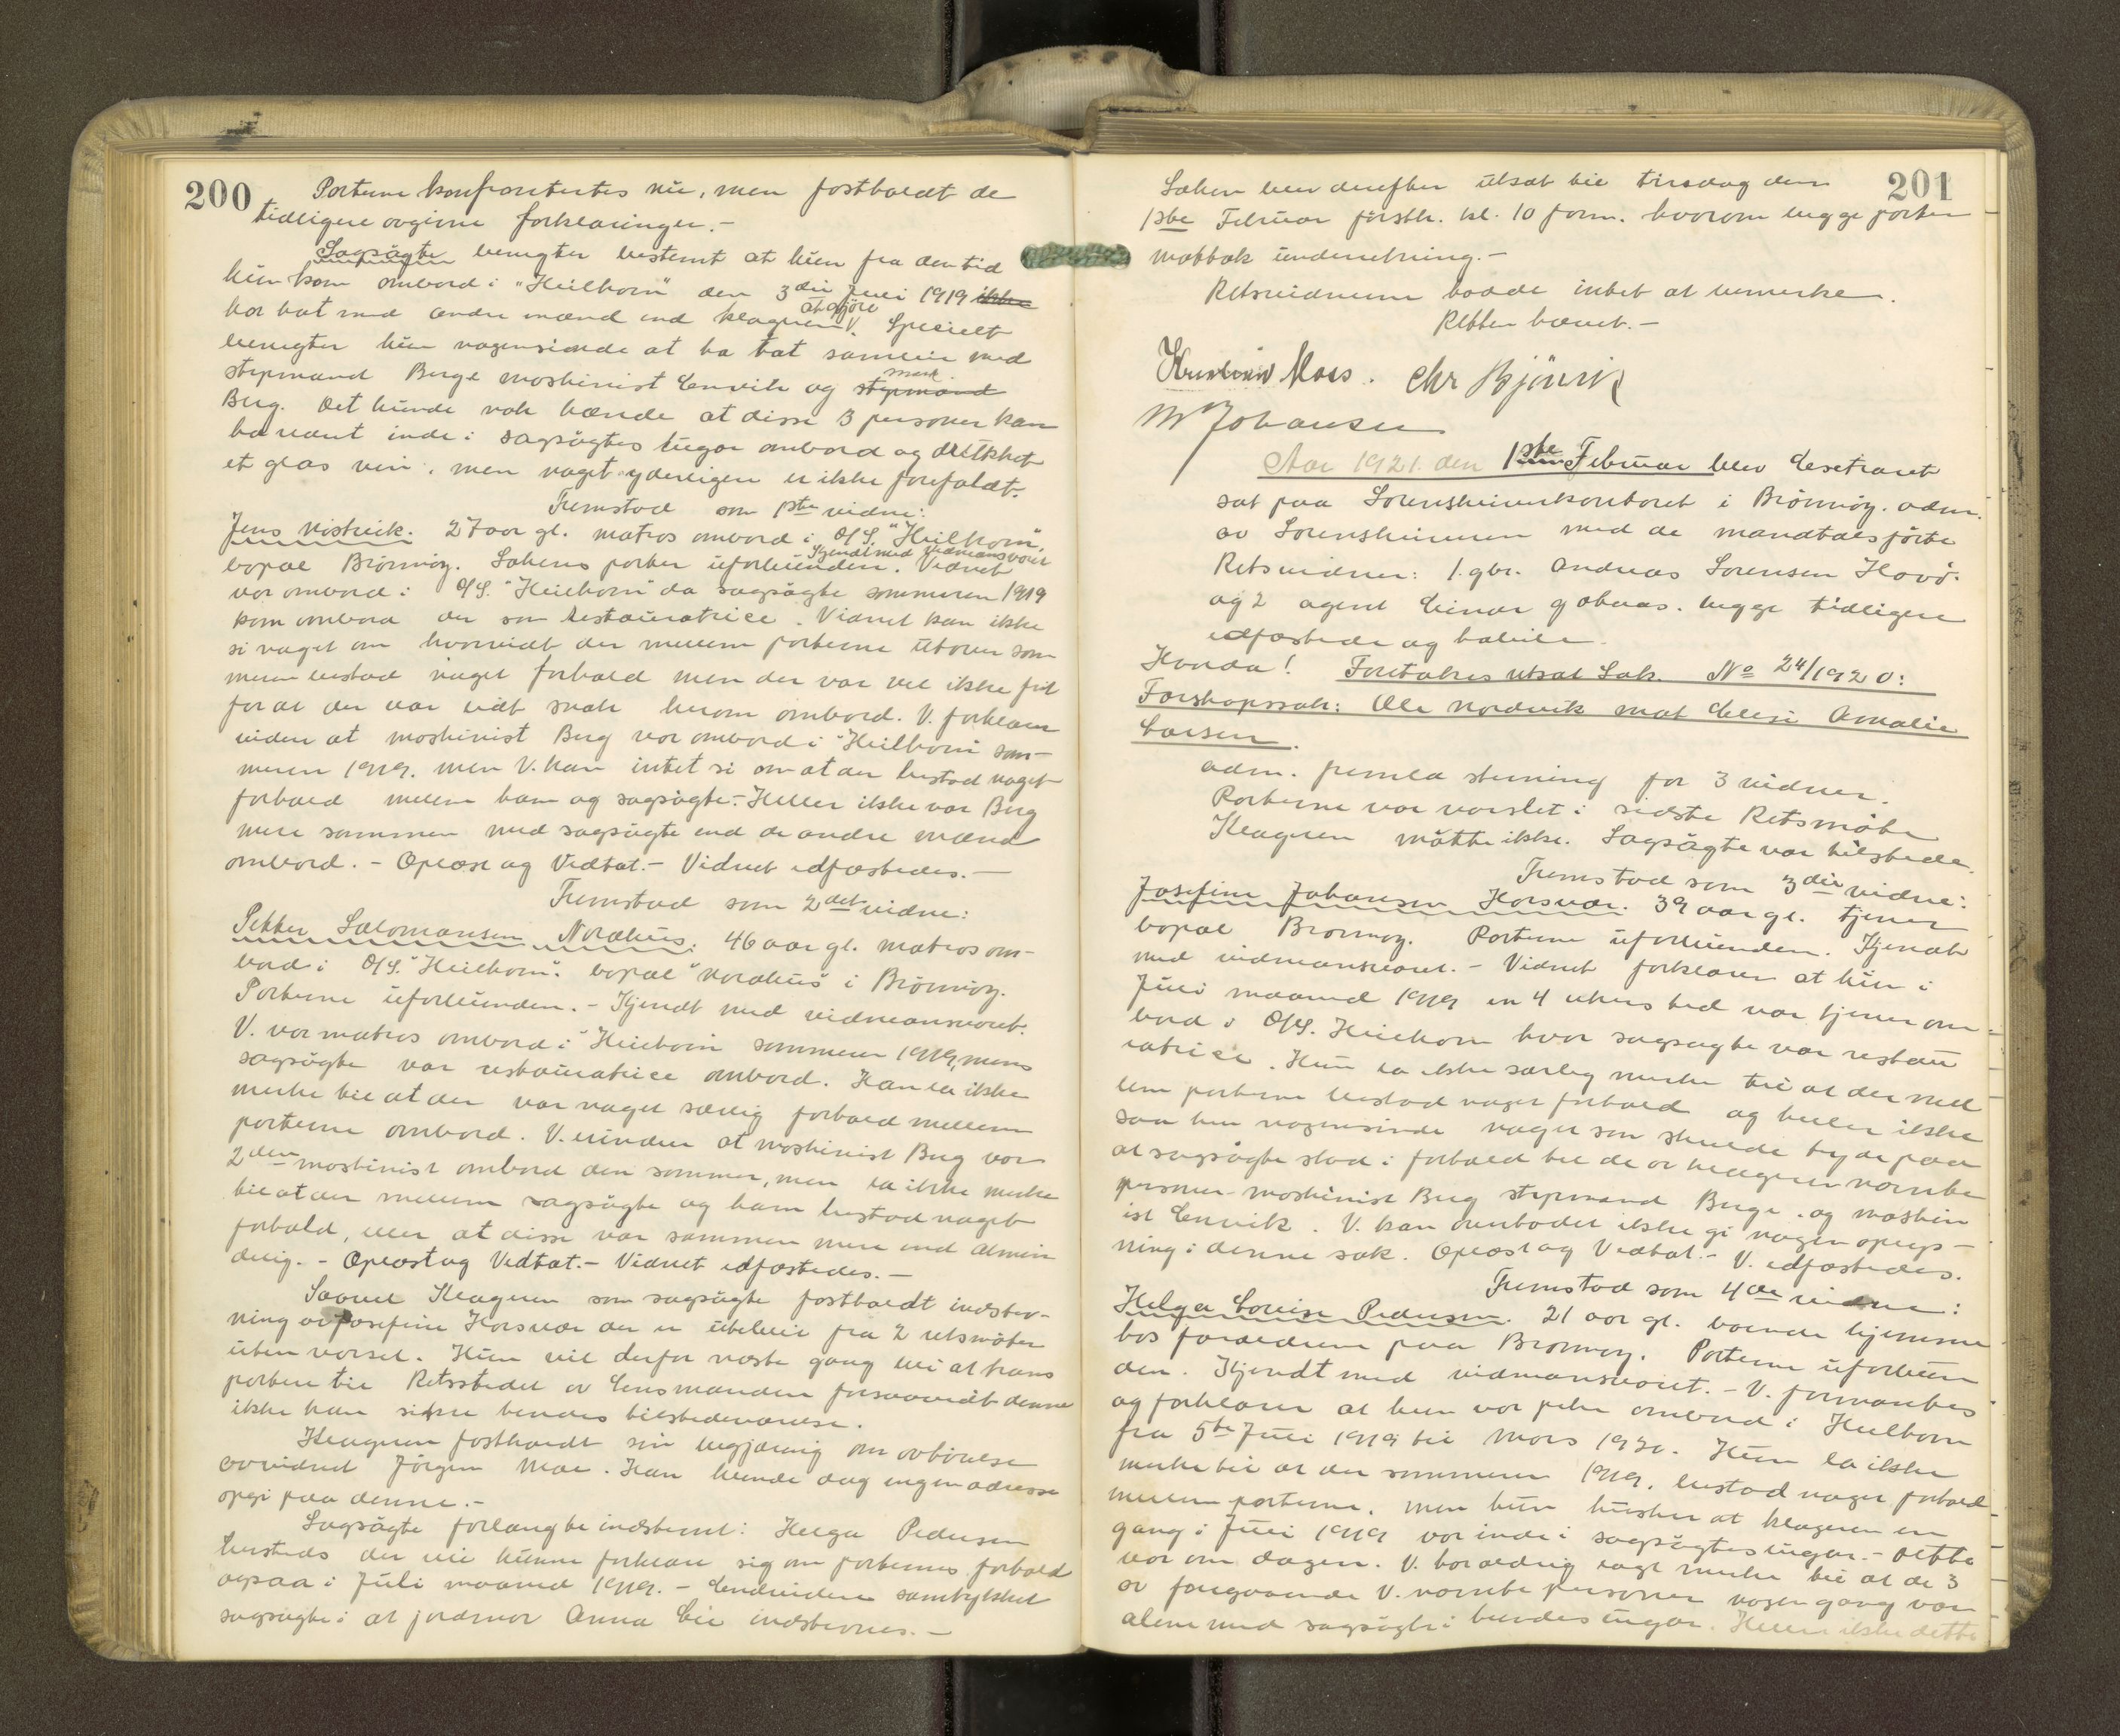 200
Parterne konfrontertes nu, men fastholdt de
tidligere avgivne forklaringer.-
Sagsøgte benegter bestemt at hun fra den tid
hun kom ombord i "Heilhorn" den 3die Juni 1919 ikke
har hat med andre mænd end klageren at gjøre V. Specielt
benegter hun nogensinde at ha hat samleie med
styrmand Berge maskinist Envik og styrmand mask.
Berg. Det kunde nok hænde at disse 3 personer kan
ha været inde i sagsøgtes lugar ombord og drukket
et glas vin, men noget yderligere er ikke forefaldt.
Fremstod som 1ste vidne:
Jens Nistvik. 27 aar gl. matros ombord i D/S. "Heilhorn",
bopæl Brønnøy. Sakens parter uforbunden. Kjendt med vidneansvaret Vidnet
var ombord i D/S. "Heilhorn" da sagsøgte sommeren 1919
kom ombord der som restauratrice. Vidnet kan ikke
si noget om hvorvidt der mellem parterne utover som
meren bestod noget forhold men der var vel ikke frit
for at der var lidt snak herom ombord. V. forklarer
viden at maskinist Berg var ombord i "Heilhorn" som-
meren 1919. men V. kan intet si om at der bestod noget
forhold mellem ham og sagsøgte.- Heller ikke var Berg
mere sammen med sagsøgte end de andre mænd
ombord. - Oplæst og Vedtat.- Vidnet edfæstedes. -
Fremstod som 2det vidne:
Petter Salomonsen Nordhus. 46 aar gl. matros om-
bord i D/S. "Heilhorn". bopæl "Nordhus" i Brønnøy.
Parterne uforbunden. - Kjendt med vidneansvaret.
V. var matros ombord i "Heilhorn sommeren 1919, mens
sagsøgte var restauratrice ombord. Han la ikke
merke til at der var noget særlig forhold mellem
parterne ombord. V. minder at maskinist Berg var
2den maskinist ombord den sommer, men la ikke merke
til at der mellem sagsøgte og ham bestod noget
forhold, eller at disse var sammen mere end almin
delig. - Oplæst og Vedtat. - Vidnet edfæstedes. -
Saavel Klageren som sagsøgte fastholdt indstev-
ning av Josefine Horsvær der er utebleit fra 2 retsmøter
uten varsel. Hun vil derfor næste gang bli at trans
portere til Retsstedet av lensmanden forsaavidt denne
ikke kan sikre hendes tilstedeværelse.
Klageren fastholdt sin begjæring om avhørelse
av vidnet Jørgen Moe. Han kunde dog ingen adresse
opgi paa denne. -
Sagsøgte forlangte indstevnt: Helga Pedersen
hersteds der vil kunne forklare sig om parternes forhold
ogsaa i Juli maaned 1919. - Endvidere samtykket
sagsøgte i at jordmor Anna Lie indstevnes. -
201
Saken blev derefter utsat til tirsdag den
1ste Februar førstk. kl. 10 form. hvorom begge parter
mottok underretning. -
Retsvidnerne hadde intet at bemerke.
Retten hævet. -
Kristian Moss. Chr Bjørvik
M Johansen
Aar 1921. den 1ste Februar blev Extraret
sat paa Sorenskriverkontoret i Brønnøy. adm.
av Sorenskriveren med de mandtalsførte
Retsvidner: 1. gbr. Andreas Sorensen Havø.
og 2 agent Einar Johaas. begge tidligere
edfæstede og habile.
Hvorda! Foretokes utsat Sak. No 24/1920:
Farskapssak: Ole Nordvik mot Elise Amalie
Larsen.
adm. fremla stevning for 3 vidner.
Parterne var varslet i sidste Retsmøte
Klageren møtte ikke. Sagsøgte var tilstede.
Fremstod som 3die vidne:
Josefine Johansen Horsvær. 39 aar gl. tjener
bopæl Brønnøy. Parterne uforbunden. Kjendt
med vidneansvaret. - Vidnet forklarer at hun i
Juli maaned 1919 en 4 ukers tid var tjener om-
bord i D/S. Heilhorn hvor sagsøgte var restau
ratrice. Hun la ikke særlig merke til at der mel
lem parterne bestod noget forhold og heller ikke
saa hun nogensinde noget som skulde tyde paa
at sagsøgte stod i forhold til de av klageren nævnte
personer - maskinist Berg styrmand Berge. og maskin
ist Envik. V. kan overhodet ikke gi nogen oplys -
ning i denne sak. Oplæst og Vedtat.- V. edfæstedes.
Fremstod som 4de vidne:
Helga Lovise Pedersen. 21 aar gl. boende hjemme
hos forældrene paa Brønnøy. Parterne uforbun
den. Kjendt med vidneansvaret. - V. formantes
og forklarer at hun var pike ombord i Heilhorn
fra 5te Juli 1919 til Mars 1920. Hun la ikke
merke til at der sommeren 1919. bestod noget forhold
mellem parterne, men hun husker at klageren en
gang i Juli 1919 var inde i sagsøgtes lugar. - Dette
var om dagen. V. har aldrig lagt merke til at de 3
av foregaaende V. nævnte personer nogen gang var
alene med sagsøgte i hendes lugar. Heller ikke dette